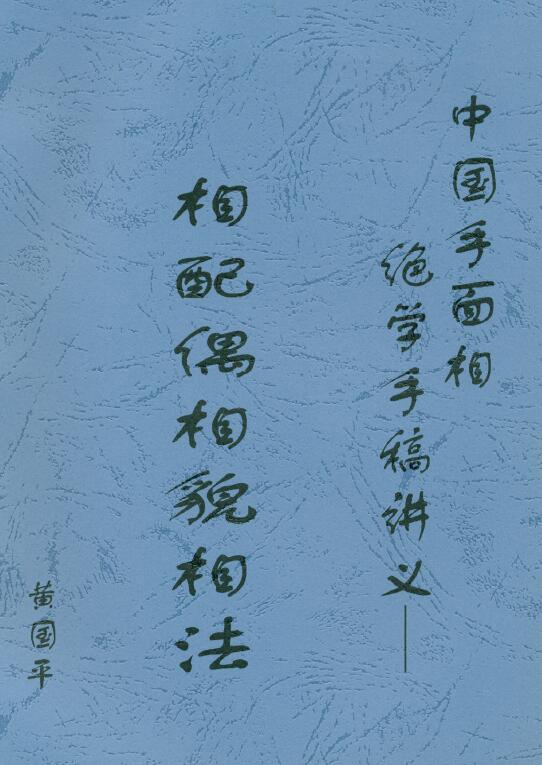 中国手面相
绝学手稿讲义——
相配偶相貌相法
黄国平